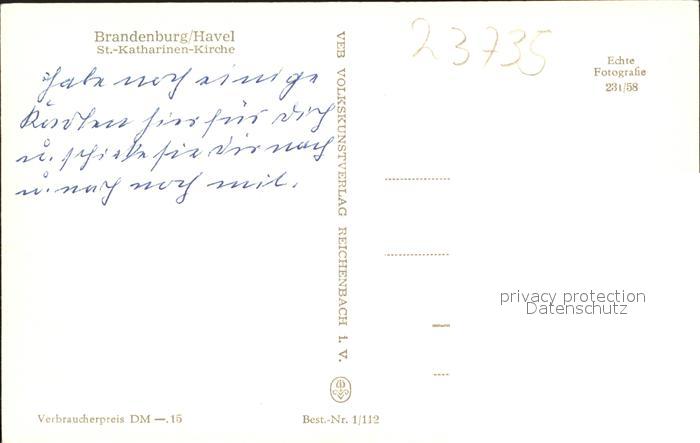 Brandenburg/Havel
St.-Katharinen-Kirche
habe noch einige
Karten hier für Dich
u. schicke sie dir nach
u. nach noch mit.
VEB VOLKSKUNSTVERLAG REICHENBACH i. V.
23735
Echte
Fotografie
231/58
privacy protection
Datenschutz
Verbraucherpreis DM —.15
Best.-Nr. 1/112